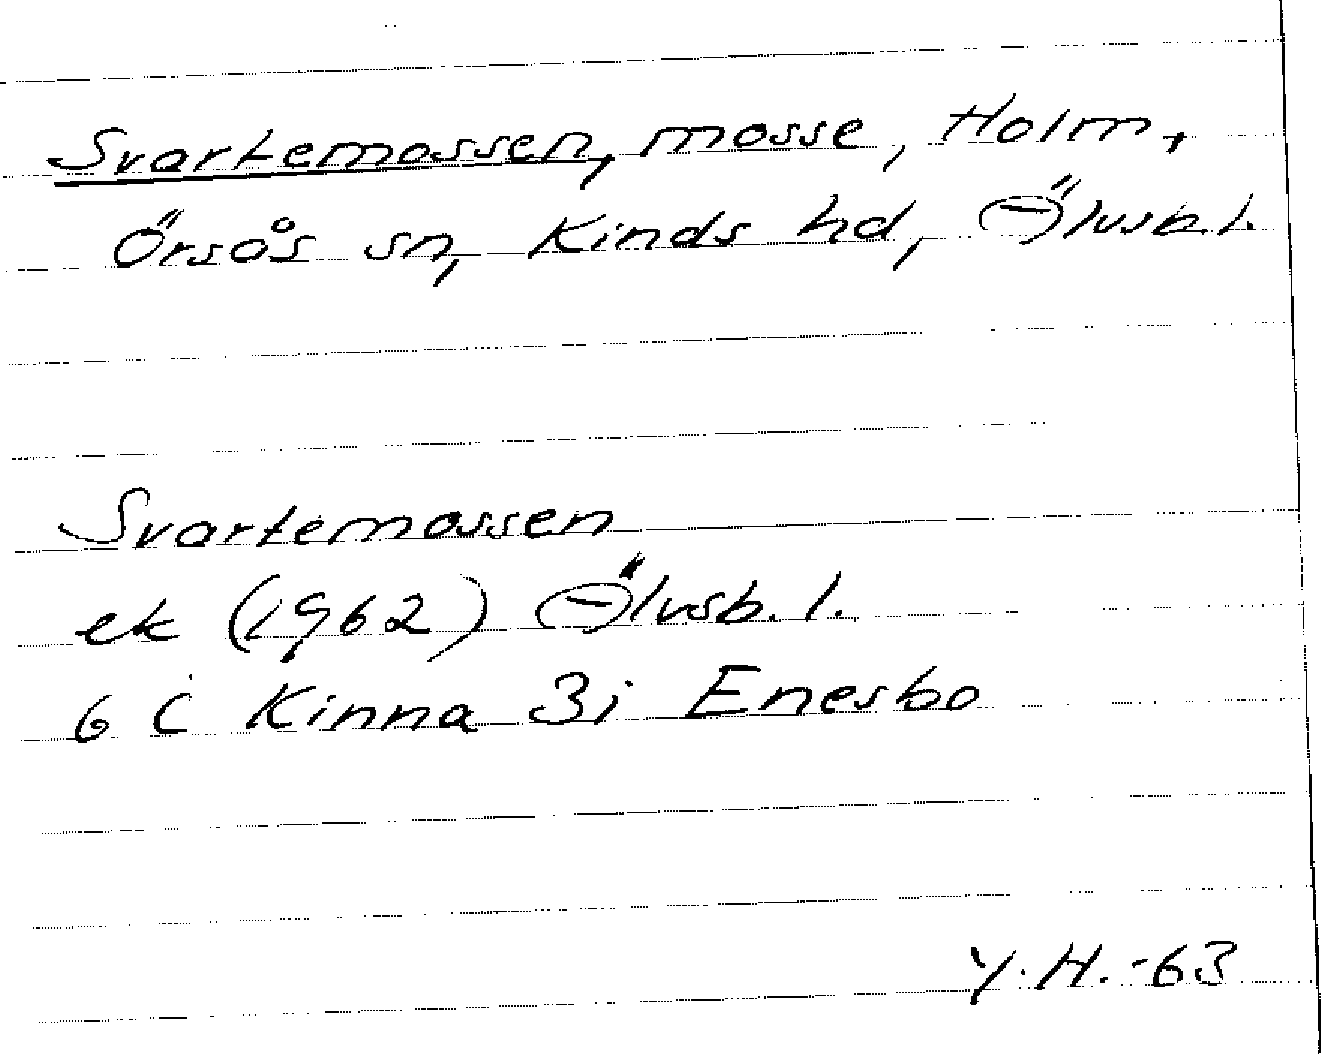 Svartemossen, mosse, Holm,
Örsås sn, Kinds hd, Älvsb.l.
Svartemossen
ek (1962) Älvsb.l.
6 C Kinna 3i Enesbo
Y.H.-63